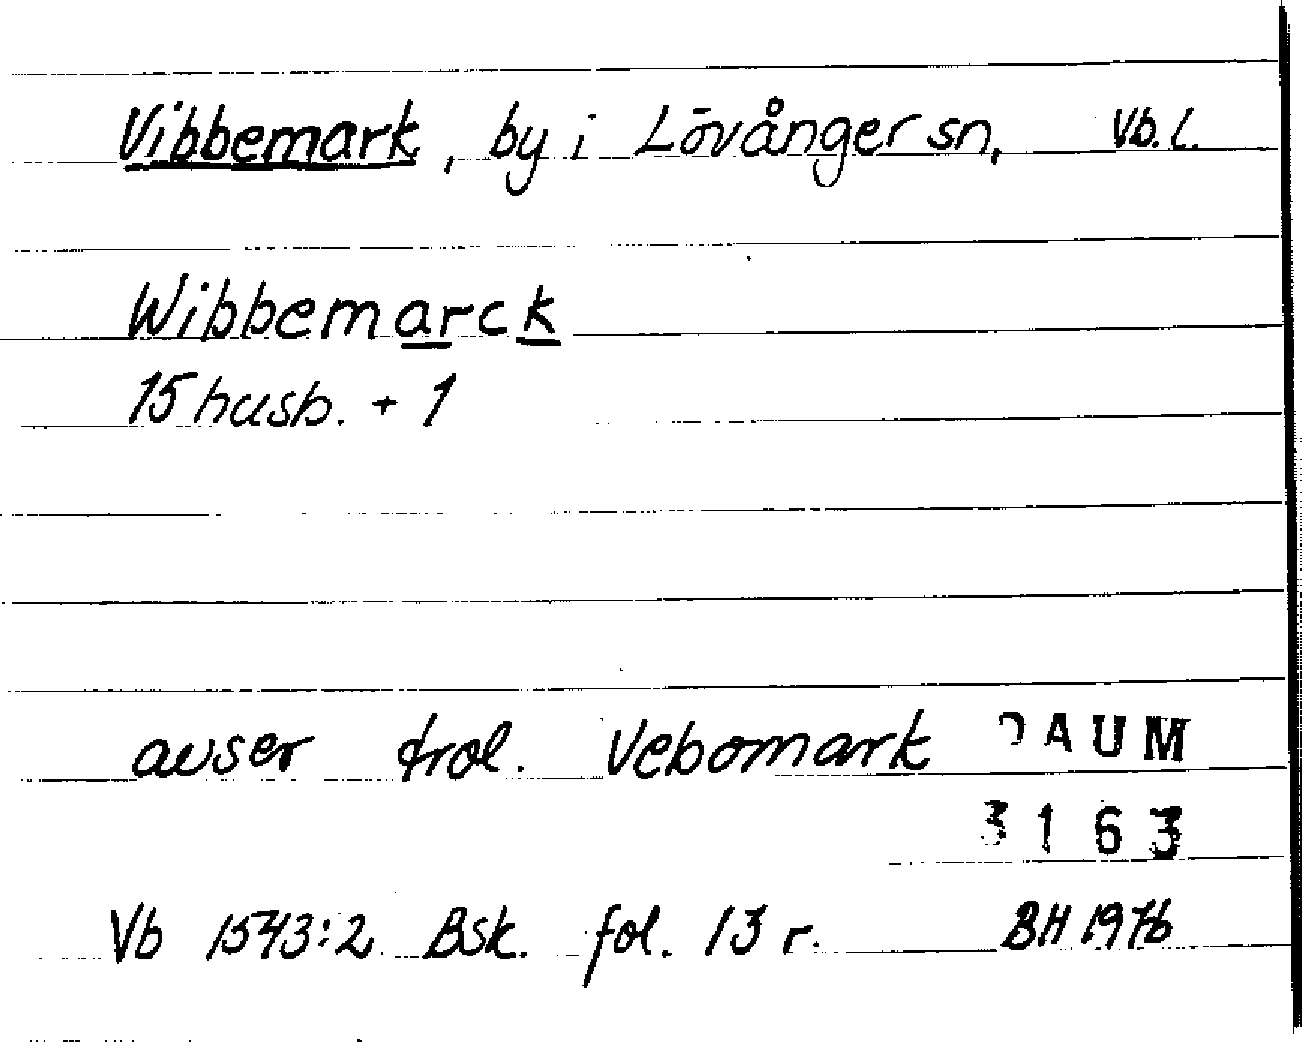 Vibbemark, by i Lövånger sn, Vb. l.
Wibbemarck
15 husb. + 1
avser trol. Vebomark DAUM
3163
Vb 1543:2 Bsk. fol. 13 r. BH 1976